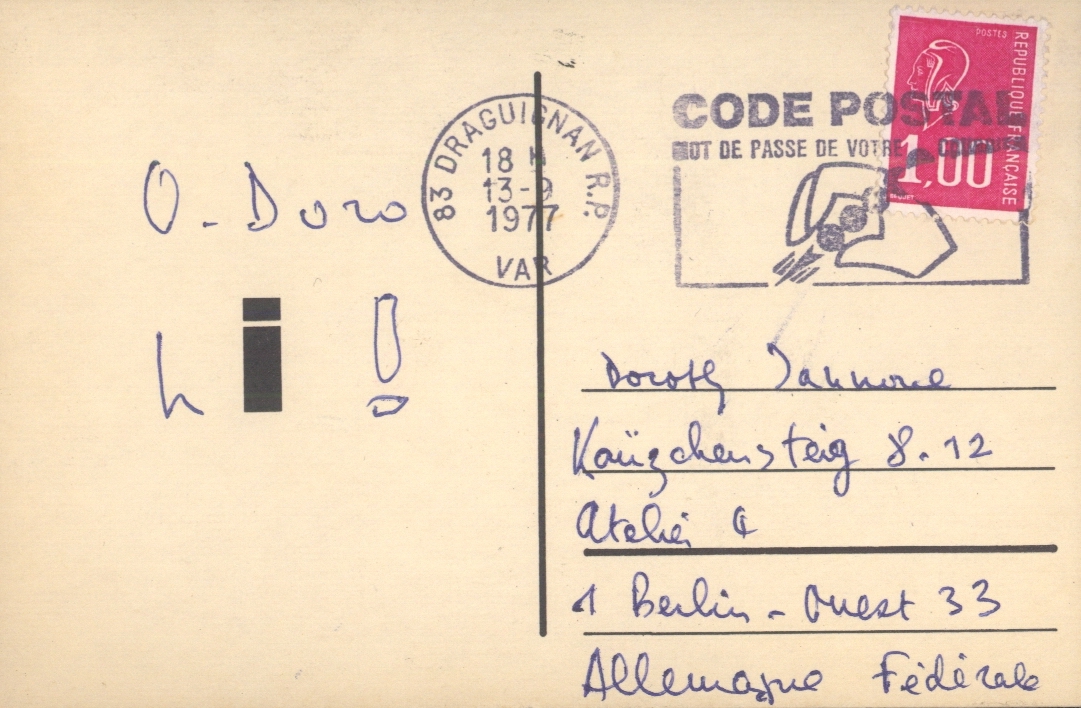 POSTES
REPUBLIQUE FRANÇAISE
1,00
BEQUET
CODE POSTAL
MOT DE PASSE DE VOTRE COURRIER
83 DRAGUIGNAN R.P.
18 H
13-9
1977
VAR
O. Doro
hi!
Dorothy Iannone
Kaüzchensteig 8.12
Atelier 4
1 Berlin - Ouest 33
Allemagne Fédérale